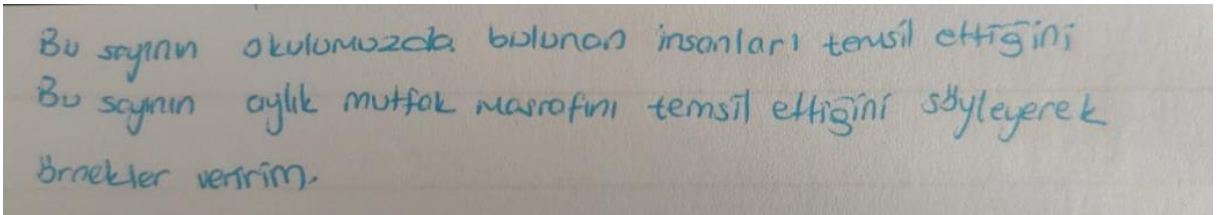 Bu sayının okulumuzda bulunan insanları temsil ettiğini
Bu sayının aylık mutfak masrafını temsil ettiğini söyleyerek
örnekler veririm.